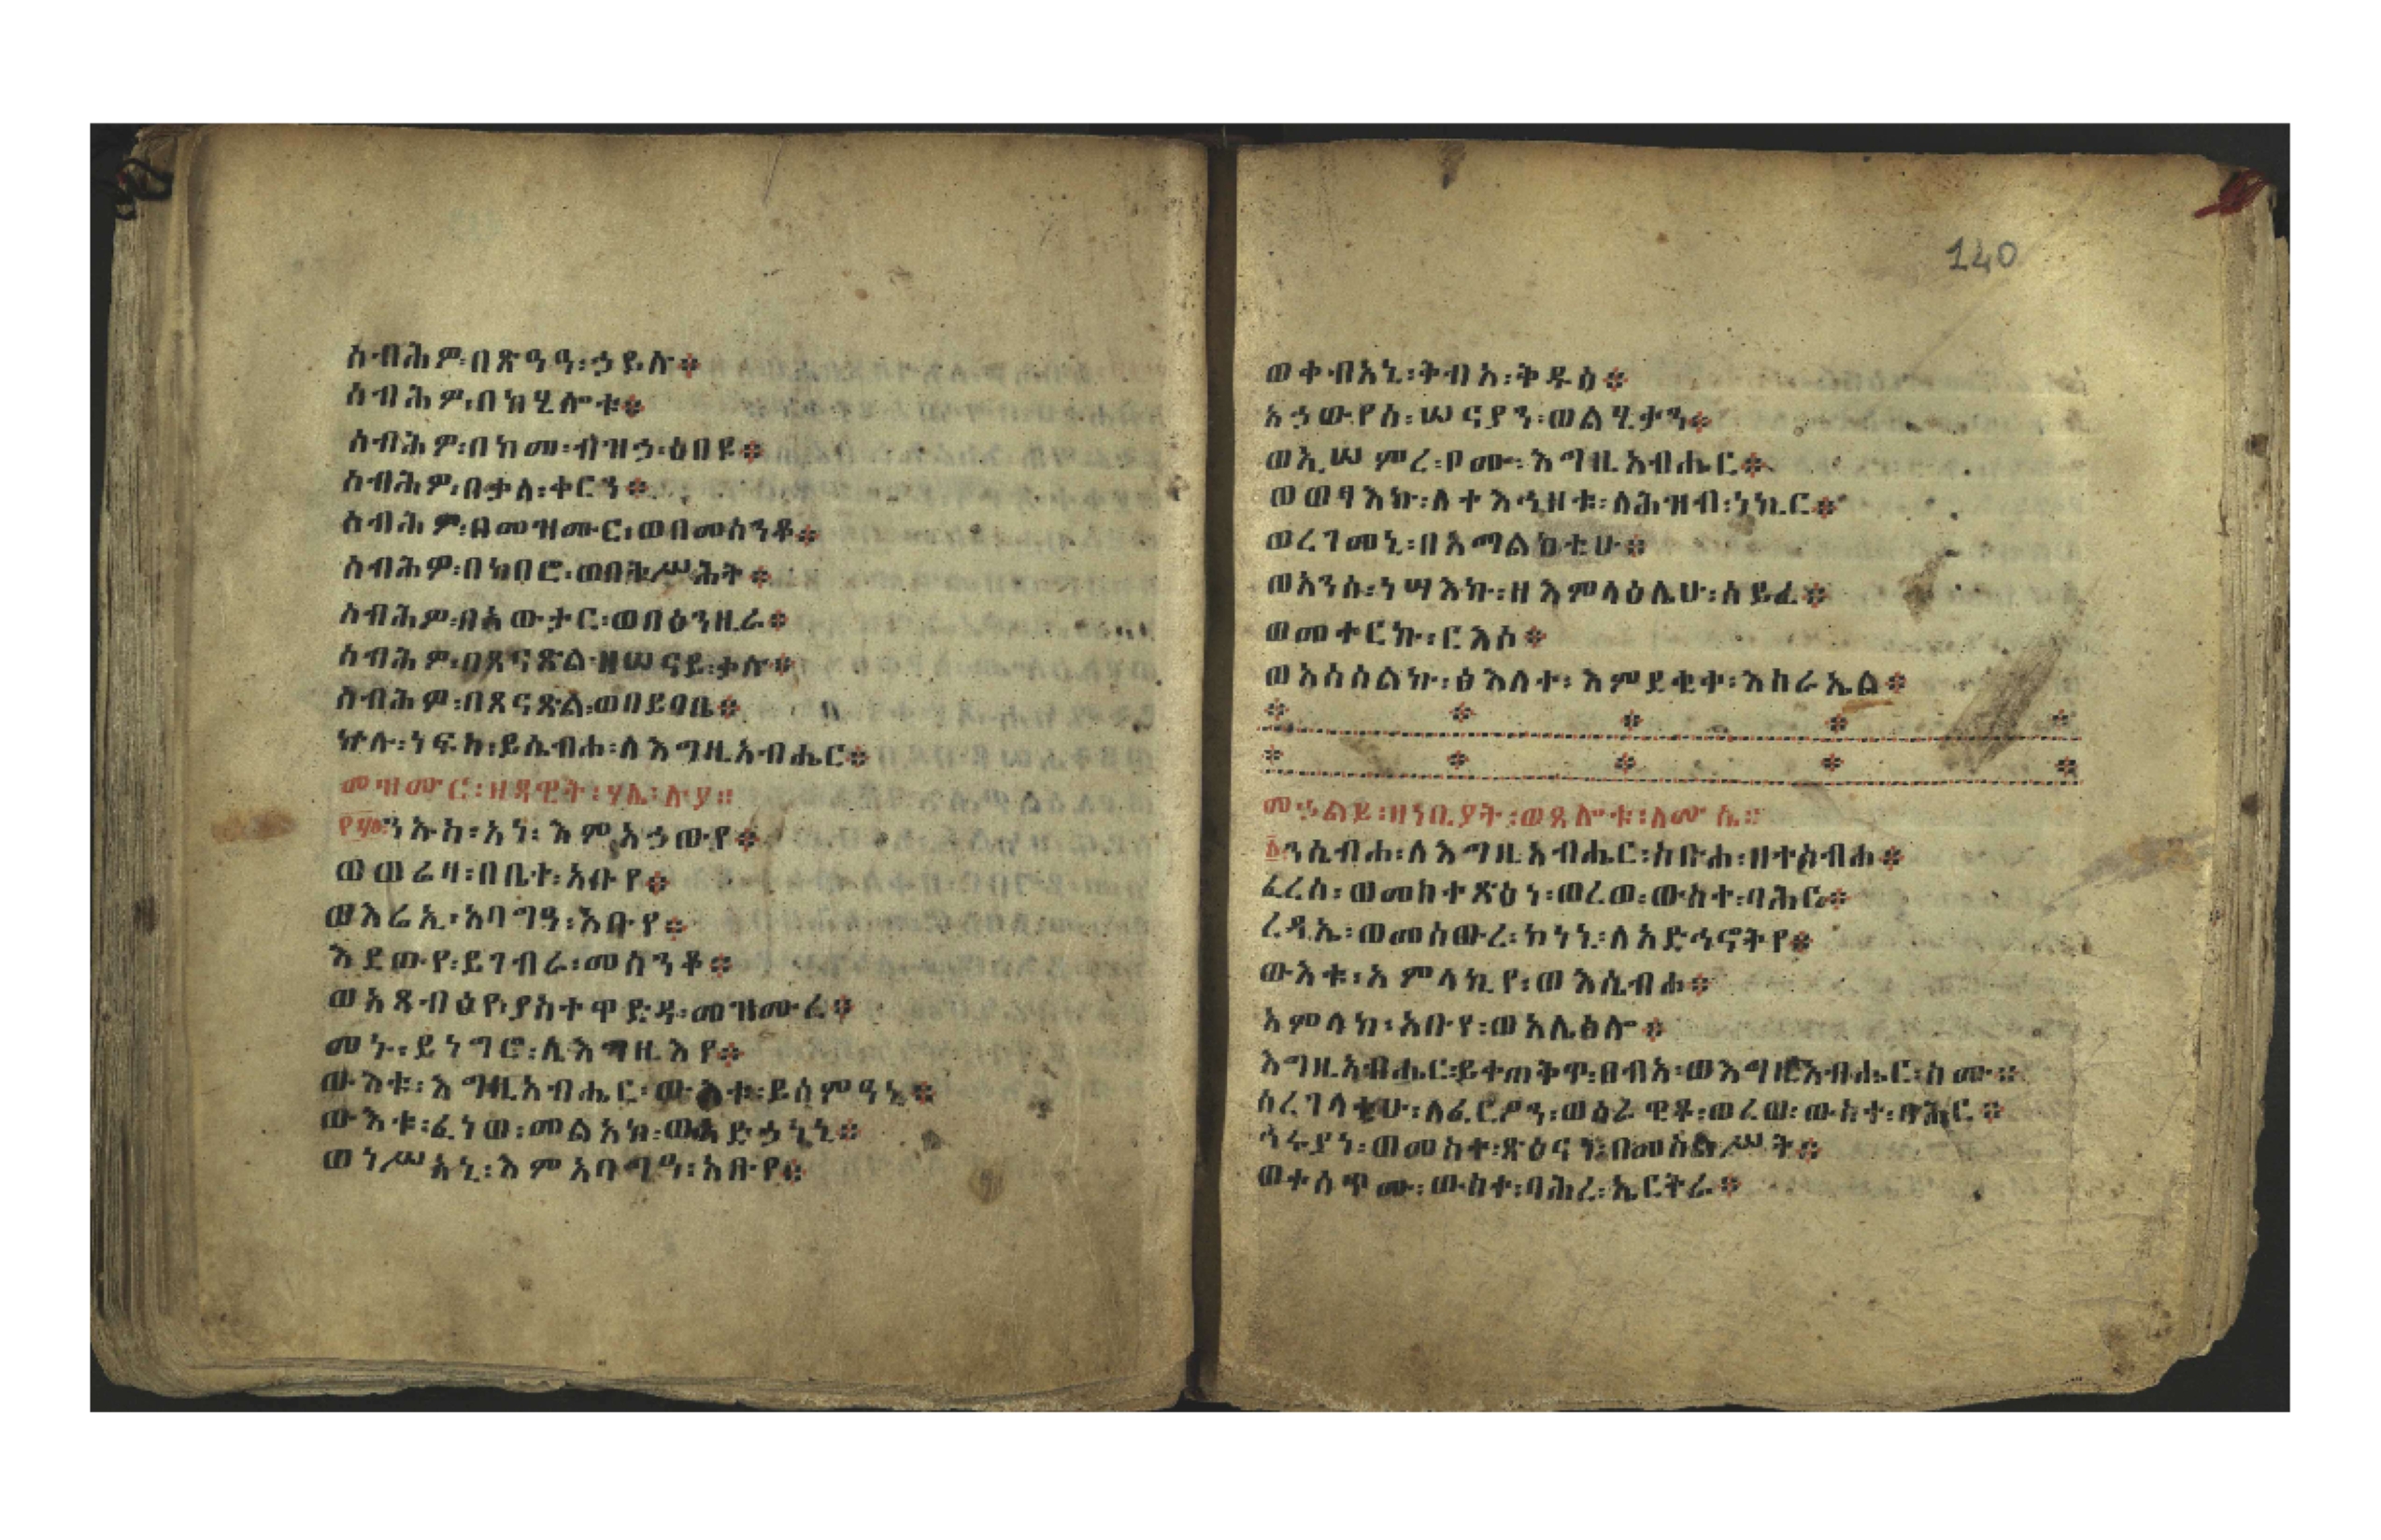 ስብሕዎ፡በጽዓዓ፡ኃይሉ፨
ስብሕዎ፡በክሂሎቱ፨
ስብሕዎ፡በከመ፡ብዝኃ፡ዕበዩ፨
ስብሕዎ፡በቃለ፡ቀርን፨
ስብሕዎ፡በመዝሙር፡ወበመሰንቆ፨
ስብሕዎ፡በከበሮ፡ወበትሥሕት፨
ስብሕዎ፡በአውታር፡ወበዕንዚራ፨
ስብሕዎ፡በጸናጽል፡ዘሠናይ፡ቃሉ፨
ስብሕዎ፡በጸናጽል፡ወበይባቤ፨
ኵሉ፡ነፍስ፡ይሴብሐ፡ለእግዚአብሔር፨
መዝሙር፡ዘዳዊት፡ሃሌ፡ሉያ፨
ንኡስ፡አነ፡እምአኃውየ፨
ወወሬዛ፡በቤተ፡አቡየ፨
ወእሬኢ፡አባግዓ፡አቡየ፨
እደውየ፡ይገብራ፡መሰንቆ፨
ወአጻብዕየ፡ያስተዋድዳ፡መዝሙረ፨
መኑ፡ይነግሮ፡ለእግዚእየ፨
ውእቱ፡እግዚአብሔር፡ውእቱ፡ይሰምዓኒ፨
ውእቱ፡ፈነወ፡መልአኮ፡ወአድኃነኒ፨
ወነሥአኒ፡እምአባግዓ፡አቡየ፨
140
ወቀብአኒ፡ቅብአ፡ቅዱስ፨
አኃውየስ፡ሠናያን፡ወልሂቃን፨
ወኢሠምረ፡ቦሙ፡እግዚአብሔር፨
ወወፃእኩ፡ለተእኂዞቱ፡ለሕዝብ፡ነኪር፨
ወረገመኒ፡በአማልክቲሁ፨
ወአንሰ፡ነሣእኩ፡ዘእምላዕሌሁ፡ሰይፈ፨
ወመተርኩ፡ርእሶ፨
ወአሰሰልኩ፡ፅእለተ፡እምደቂቀ፡እስራኤል፨
መኃልይ፡ዘነቢያት፡ወጸሎቱ፡ለሙሴ፨
ንሴብሐ፡ለእግዚአብሔር፡ስቡሐ፡ዘተሰብሐ፨
ፈረሰ፡ወመስተጽዕነ፡ወረወ፡ውስተ፡ባሕር፨
ረዳኤ፡ወመሰውረ፡ኮነኒ፡ለአድኅኖትየ፨
ውእቱ፡አምላኪየ፡ወእሴብሖ፨
አምላከ፡አቡየ፡ወአሌዕሎ፨
እግዚአብሔር፡ይተጠቅጥ፡ፀብአ፡ወእግዚአብሔር፡ስሙ፨
ሰረገላቲሁ፡ለፈርዖን፡ወሰራዊቶ፡ወረወ፡ውስተ፡ባሕር፨
ኅሩያነ፡ወመስተ፡ጽዕናን፡በመስልሥት፨
ወተሰጥሙ፡ውስተ፡ባሕረ፡ኤርትራ፨